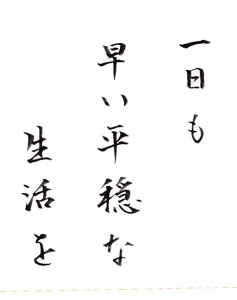 一日も
早い平穏な
生活を